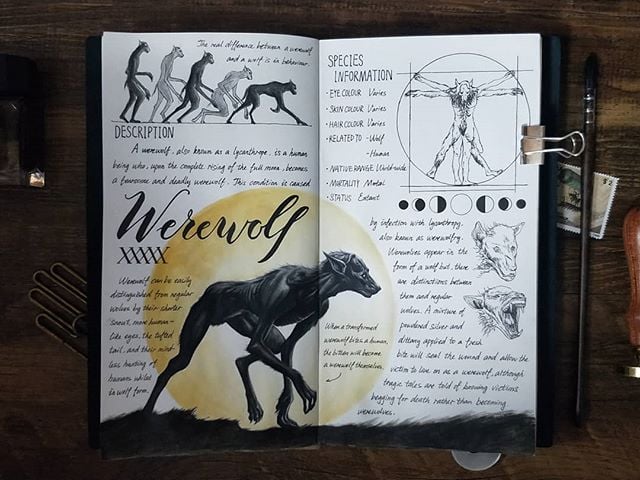 The real difference between a werewolf
and a wolf is in behaviour.
DESCRIPTION
A werewolf, also known as a lycanthrope, is a human
being who, upon the complete rising of the full moon, becomes
a fearsome and deadly werewolf. This condition is caused
Werewolf
XXXXX
Werewolf can be easily
distinguished from regular
wolves by their shorter
snout, more human-
like eyes, the tufted
tail, and their mind-
less hunting of
humans whilst
in wolf form.
SPECIES
INFORMATION
· EYE COLOUR Varies
· SKIN COLOUR Varies
· HAIR COLOUR Varies
· RELATED TO -Wolf
-Human
· NATIVE RANGE Worldwide
· MORTALITY Mortal
· STATUS Extant
by infection with lycanthropy,
also known as werewolfry.
Werewolves appear in the
form of a wolf but, there
are distinctions between
them and regular
wolves. A mixture of
powdered silver and
dittany applied to a fresh
bite will seal the wound and allow the
victim to live on as a werewolf, although
tragic tales are told of knowing victims
begging for death rather than becoming
werewolves.
When a transformed
werewolf bites a human,
the bitten will become
a werewolf themselves.